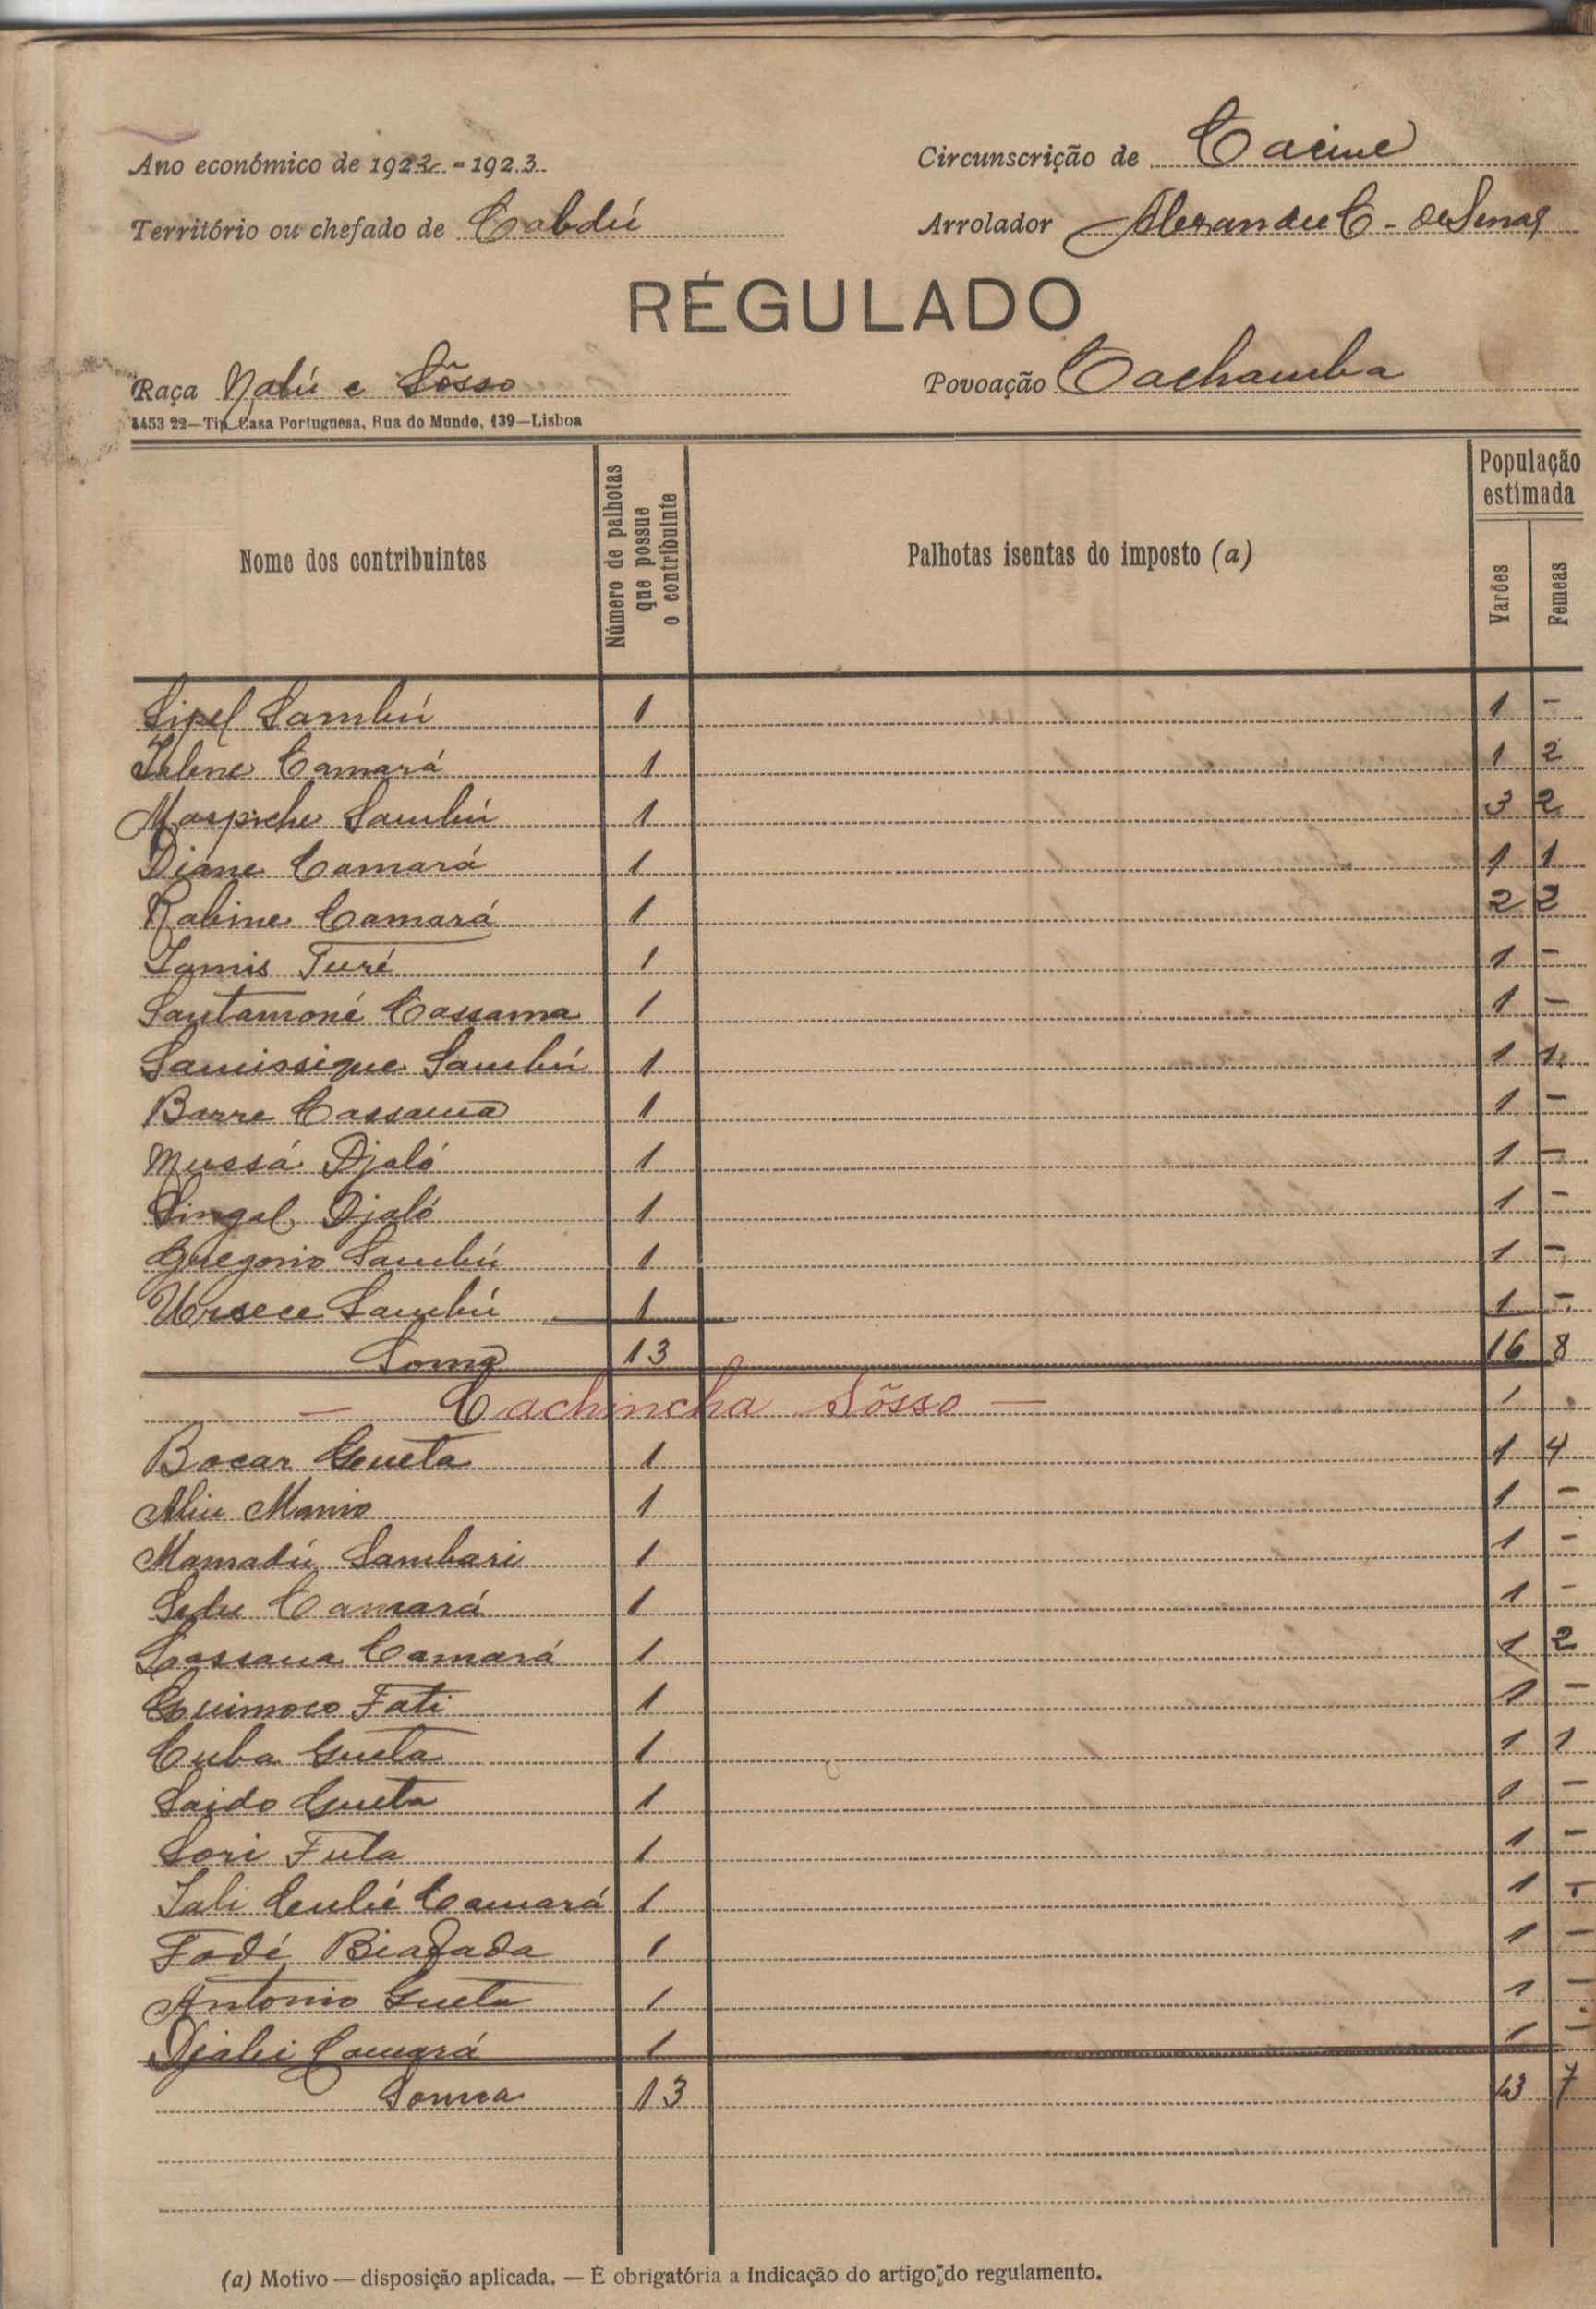 Ano económico de 1922-1923
Circunscrição de Cacine
Território ou chefado de Cabdú
Arrolador Alexandre C. de Senas
RÉGULADO
Raça Nalú e Sõsso
Povoação Cachamba
4453 22—Tip. Casa Portuguesa, Rua do Mundo, 139—Lisboa
Nome dos contribuintes
Número de palhotas que possue o contribuinte
Palhotas isentas do imposto (a)
População estimada
Varões
Femeas
Sipel Sambú 1 1 -
Camará 1 1 2
Sambú 1 3 2
Diane Camará 1 1 1
Rabine Camará 1 2 2
Lamis Turé 1 1 -
Santamoné Cassama 1 1 -
Samissique Sambú 1 1 1
Barre Cassama 1 1 -
Mussá Djaló 1 1 -
Singal Djaló 1 1 -
Gregorio Sambú 1 1 -
Sambú 1 1 -
Soma 13 16 8
- Cachincha Sõsso -
Bocar Gueta 1 1 4
Aliu Manio 1 1 -
Mamadú Sambari 1 1 -
Sedu Camará 1 1 -
Lassana Camará 1 1 2
Guimoco Fati 1 1 -
Cuba Gueta 1 1 1
Saido Gueta 1 1 -
Sori Fula 1 1 -
Camará 1 1 -
Fodé Biafada 1 1 -
Antonio Gueta 1 1 -
Djabi Camará 1 1 -
Soma 13 13 7
(a) Motivo — disposição aplicada. — É obrigatória a indicação do artigo do regulamento.